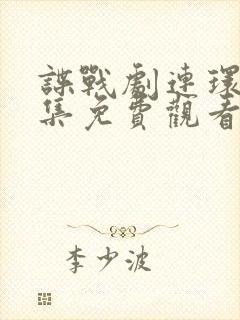 諜戰劇連環
集免費觀看
李少波